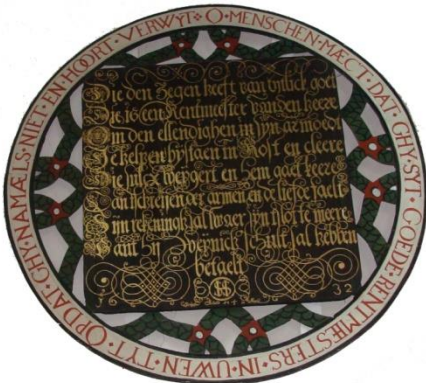 O·MENSCHEN·MÆCT·DAT·GHY·SYT·GOEDE·RENTMEESTERS·IN·UWEN·TYT·OPDAT·GHY·NAMÆLS·NIET·EN·HOORT·VERWYT
Die den Zegen heeft van tytlick goet
Die is een Rentmeester van den heere
Om den ellendighen in syn armoedt
Te helpen bystaen in Kost en cleere
Die sulcx weygert en hem gaet keere
van tschreijen der armen en de liefde faelt
Sijn rekeningh sal swaer syn slot te meere
Want
sal hebben
betaelt
16 32